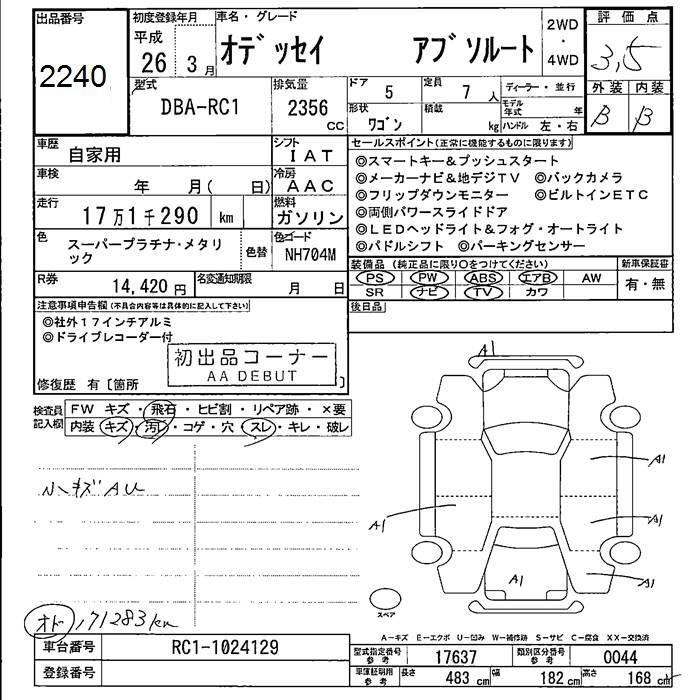 出品番号
2240
初度登録年月
平成
26 3月
車名・グレード
オデッセイ アブソルート
2WD
・
4WD
評価点
3,5
型式
DBA-RC1
排気量
2356
CC
ドア
5
定員
7 人
ディーラー・並行
形状
ワゴン
積載
kg
モデル年式 年
ハンドル 左・右
外装 内装
B B
車歴
自家用
シフト
IAT
車検
年 月( 日)
冷房
AAC
走行
17万1千290 km
燃料
ガソリン
色
スーパープラチナ・メタリック
色替
色コード
NH704M
R券
14,420円
名変通知期限
月 日
セールスポイント(正常に機能するものに限ります)
◎スマートキー&プッシュスタート
◎メーカーナビ&地デジTV ◎バックカメラ
◎フリップダウンモニター ◎ビルトインETC
◎両側パワースライドドア
◎LEDヘッドライト&フォグ・オートライト
◎パドルシフト ◎パーキングセンサー
装備品(純正品に限り○をつけてください)
新車保証書
PS PW ABS エアB AW
SR ナビ TV カワ
有・無
後日品
注意事項申告欄(不具合内容等は具体的に記入して下さい)
◎社外17インチアルミ
◎ドライブレコーダー付
初出品コーナー
AA DEBUT
修復歴 有〔箇所 〕
検査員記入欄
FW キズ・飛石・ヒビ割・リペア跡・×要
内装・キズ・汚レ・コゲ・穴・スレ・キレ・破レ
小キズAU
オド 171283km
A1
A1
A1
A1
A1
A1
スペア
A-キズ E-エクボ U-凹み W-補修跡 S-サビ C-腐食 XX-交換済
車台番号
RC1-1024129
登録番号
型式指定番号
参考
17637
類別区分番号
参考
0044
車庫証明用
参考
長さ 483 cm
幅 182 cm
高さ 168 cm